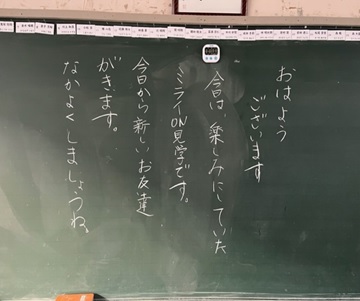 おはよう
ございます
今日は、楽しみにしていた
ミライON見学です。
今日から新しいお友達
がきます。
なかよくしましょうね。